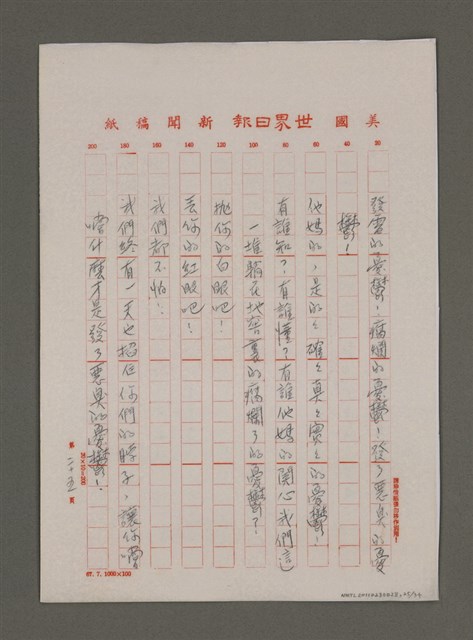 美國世界日報新聞稿紙
20
40
60
80
100
120
140
160
180
200
發霉的憂鬱!腐爛的憂鬱!發了惡臭的憂
鬱!
他媽的,是的々確々真々實々的憂鬱!
有誰知?有誰懂?有誰他媽的關心我們這
一堆躺在地窖裏的腐爛了的憂鬱?
拋你的白眼吧!
丟你的紅眼吧!
我們都不怕!
我們終有一天也掐住你們的脖子,讓你嚐
嚐什麼才是發了惡臭的憂鬱!
20×10=200
第二十五頁
67.7.1000×100